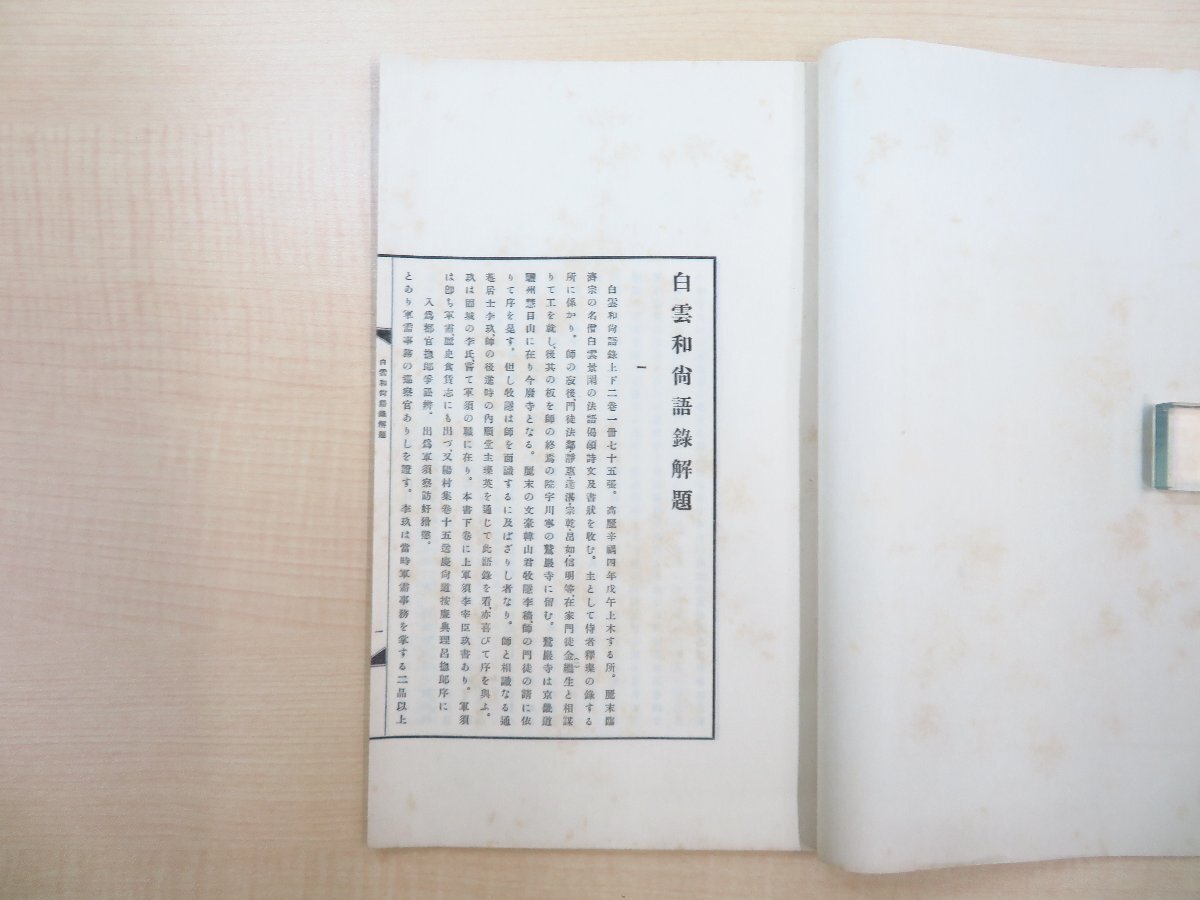 白雲和尙語錄解題
一
白雲和尙語錄上下二卷一冊七十五張。高麗辛禑四年戊午上木する所。麗末臨
濟宗の名僧白雲景閑の法語偈頌詩文及書狀を收む。主として侍者釋璨の錄する
所に係かり。師の寂後、門徒法鄰・靜惠・達湛・宗乾・昌如・信明等、在家門徒金繼生と相謀
(一)
りて工を就し、後其の板を師の終焉の院宇川寧の鷲巖寺に留む。鷲巖寺は京畿道
驪州慧目山に在り今廢寺となる。麗末の文豪韓山君牧隱李穡、師の門徒の請に依
りて序を是す。但し牧隱は師を面識するに及ばざりし者なり。師と相識なる通
菴居士李玖、師の後進時の內願堂主璨英を通じて此語錄を看、亦喜びて序を與ふ。
玖は固城の李氏、嘗て軍須の職に在り。本書下卷に上軍須李宰臣玖書あり。軍須
は卽ち軍需、麗史食貨志にも出づ、又陽村集卷十五送慶尙道按廉典理呂摠郞序に
入爲都官摠郞爭訟辨。出爲軍須察訪奸猾懲。
とあり軍需事務の巡察官ありしを證す。李玖は當時軍需事務を掌する二品以上
白雲和尙語錄解題
一